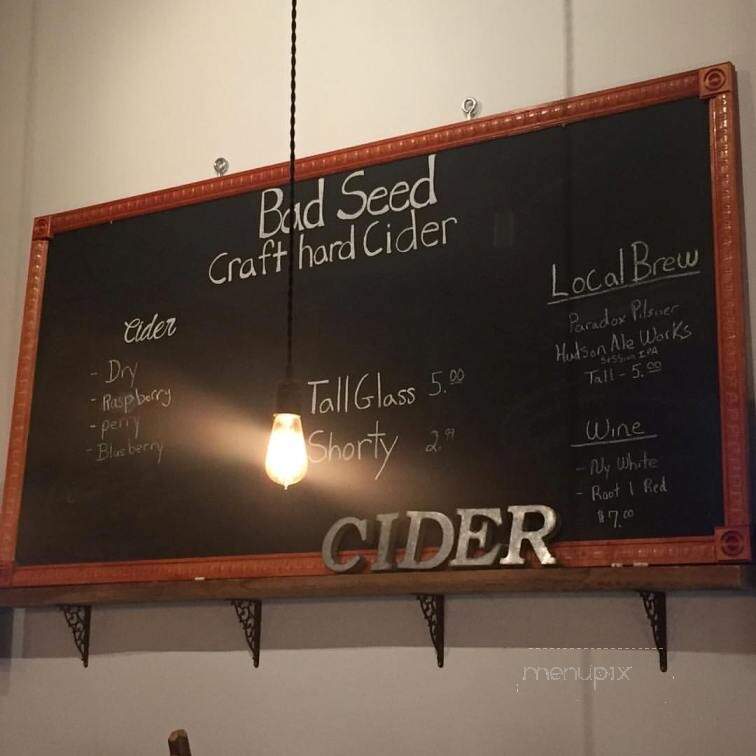 Bad Seed
Craft hard Cider
Cider
- Dry
- Raspberry
- perry
- Blueberry
Tall Glass 5.00
Shorty 2.99
CIDER
Local Brew
Paradox Pilsner
Hudson Ale Works
Session IPA
Tall - 5.00
Wine
- Ny White
- Root 1 Red
$7.00
menupix